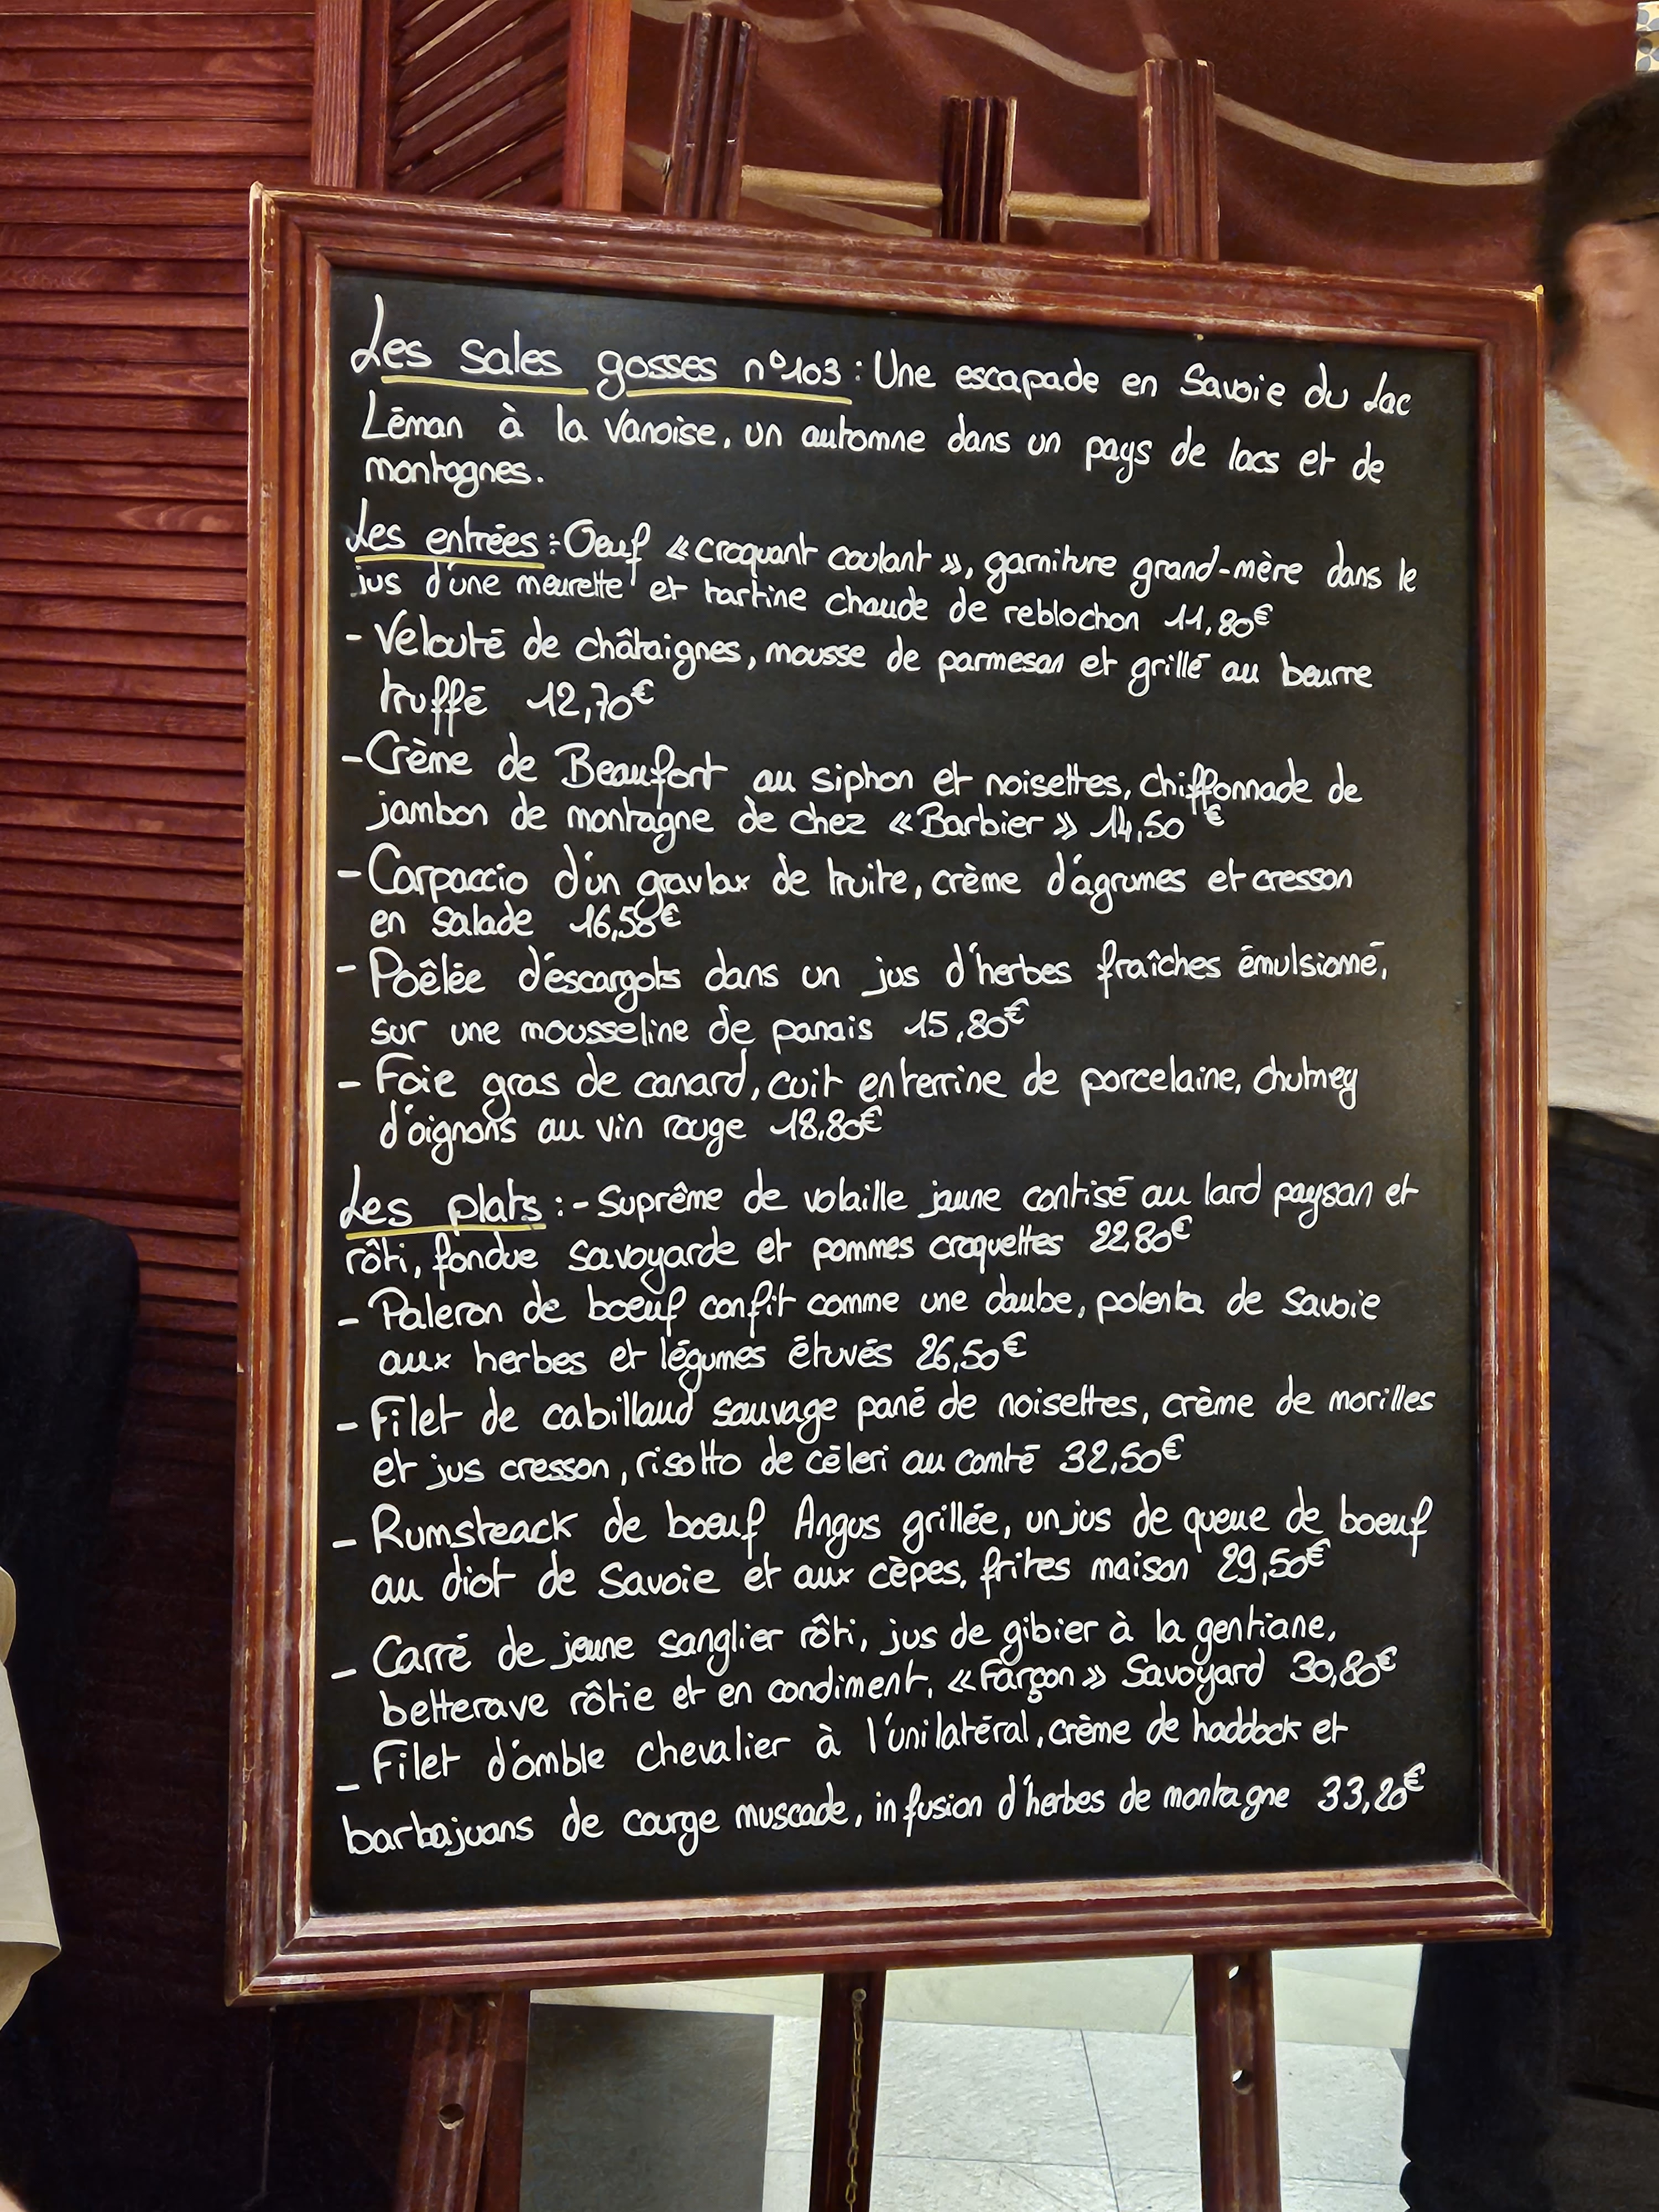 Les sales gosses n°103 : Une escapade en Savoie du Lac
Léman à la Vanoise, un automne dans un pays de lacs et de
montagnes.
Les entrées :- Oeuf « croquant coulant », garniture grand-mère dans le
jus d'une meurette et tartine chaude de reblochon 11,80€
- Velouté de châtaignes, mousse de parmesan et grillé au beurre
truffé 12,70€
- Crème de Beaufort au siphon et noisettes, chiffonnade de
jambon de montagne de chez « Barbier » 14,50€
- Carpaccio d'un gravlax de truite, crème d'agrumes et cresson
en salade 16,50€
- Poêlée d'escargots dans un jus d'herbes fraîches émulsionné,
sur une mousseline de panais 15,80€
- Foie gras de canard, cuit en terrine de porcelaine, chutney
d'oignons au vin rouge 18,80€
Les plats :- Suprême de volaille jaune contisé au lard paysan et
rôti, fondue savoyarde et pommes croquettes 22,80€
- Paleron de boeuf confit comme une daube, polenta de Savoie
aux herbes et légumes étuvés 26,50€
- Filet de cabillaud sauvage pané de noisettes, crème de morilles
et jus cresson, risotto de céleri au comté 32,50€
- Rumsteack de boeuf Angus grillée, un jus de queue de boeuf
au diot de Savoie et aux cèpes, frites maison 29,50€
- Carré de jeune sanglier rôti, jus de gibier à la gentiane,
betterave rôtie et en condiment, « Farçon » Savoyard 30,80€
- Filet d'omble chevalier à l'unilatéral, crème de haddock et
barbajuans de courge muscade, infusion d'herbes de montagne 33,20€